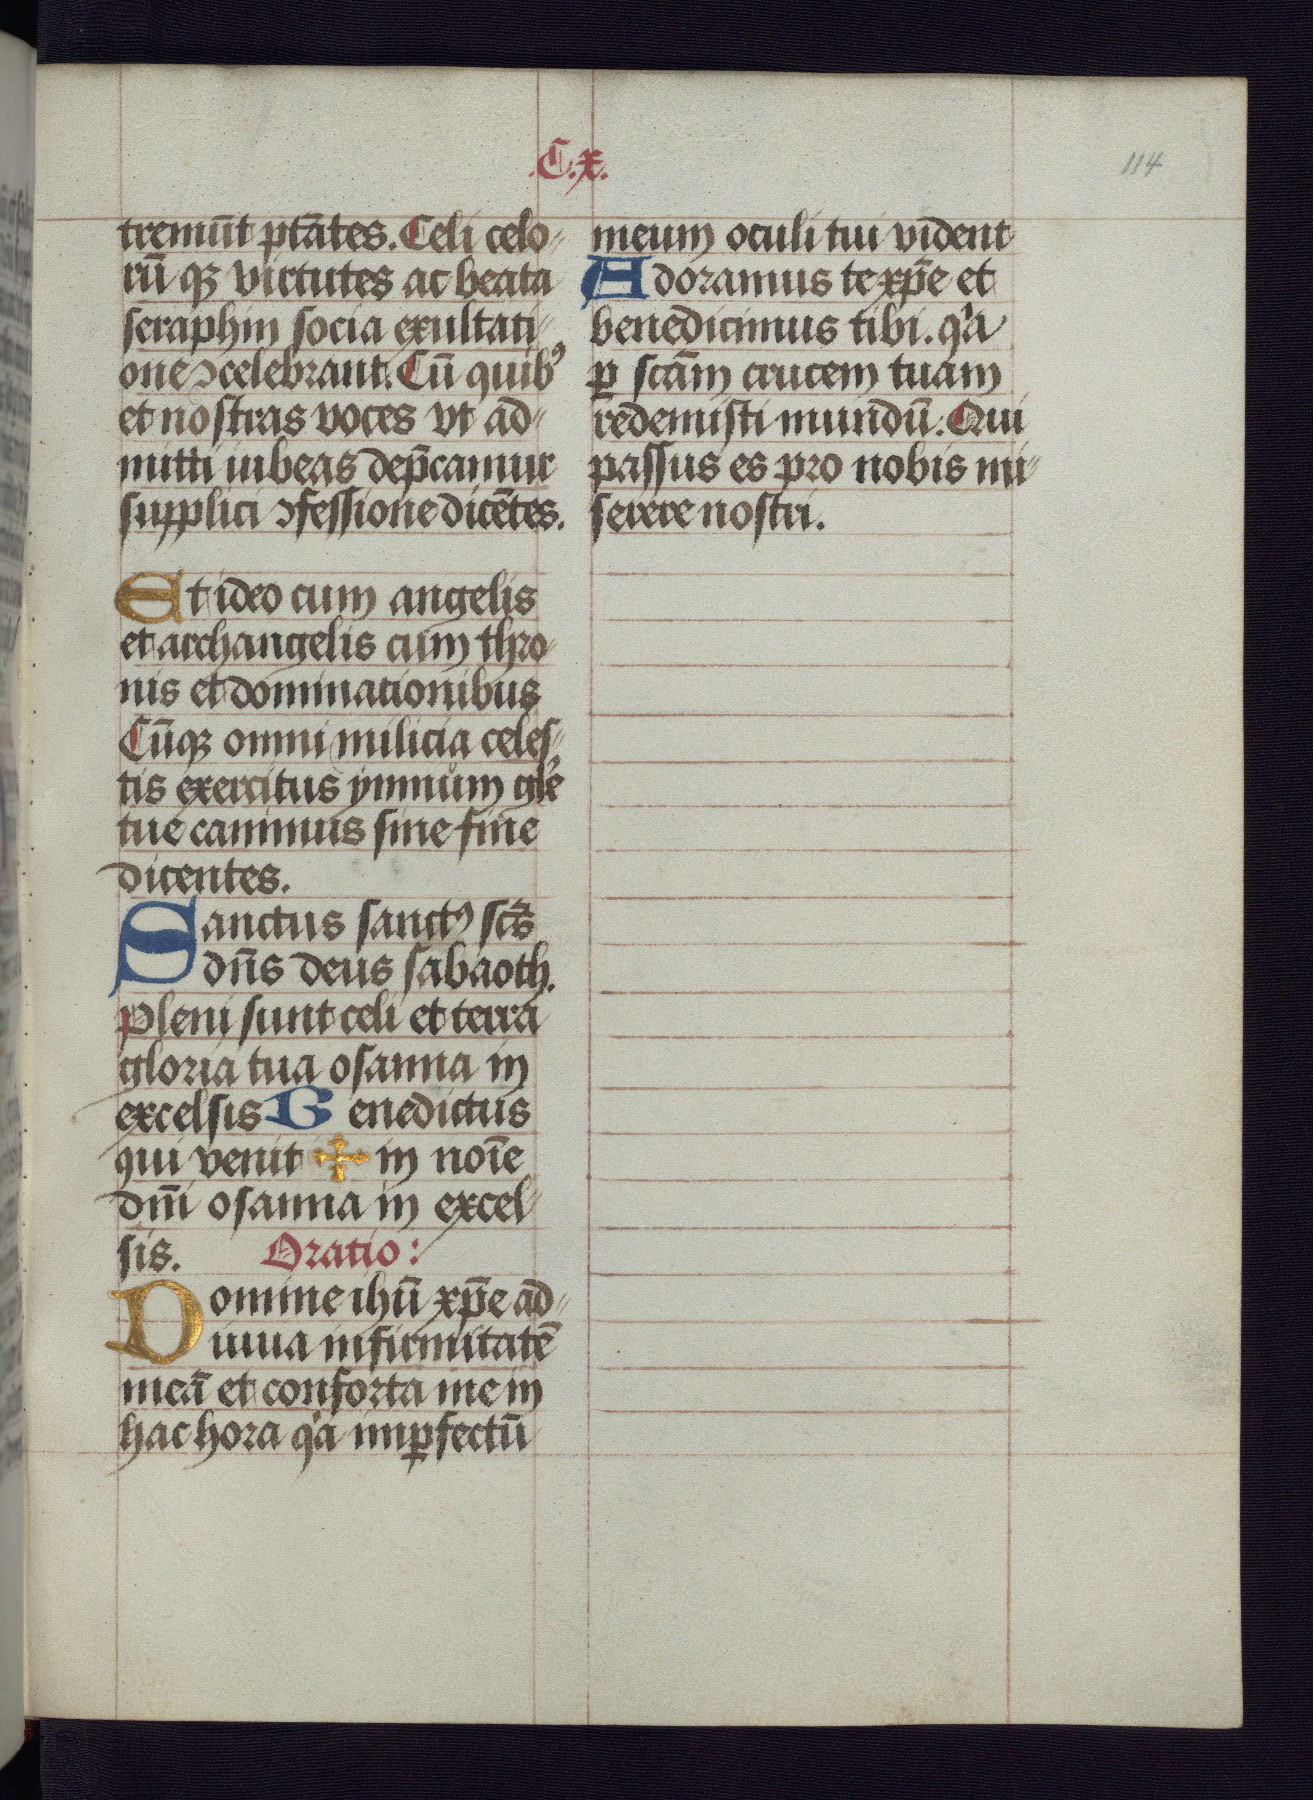 .C.x.
114
tremūt ptātes. Celi celo-
rū qꝫ virtutes ac beata
seraphin socia exultati-
one ɔcelebrant. Cū quibꝰ
et nostras voces vt ad-
mitti iubeas dep̄camur
supplici ɔfessione dicētes.
Et ideo cum angelis
et archangelis cum thro-
nis et dominationibus
Cūqꝫ omni milicia celes-
tis exercitus ymnum glꝰe
tue canimus sine fine
dicentes.
Sanctus sanctꝰ scs̄
dn̄s deus sabaoth.
Pleni sunt celi et terra
gloria tua osanna in
excelsis Benedictus
qui venit ✣ in noīe
dnī osanna in excel-
sis. Oratio:
Domine ihū xp̄e ad-
iuua infirmitatē
meā et conforta me in
hac hora qͥa imꝑfectū
meum oculi tui vident
Adoramus te xp̄e et
benedicimus tibi. qͥa
ꝑ scām crucem tuam
redemisti mundū. Qui
passus es pro nobis mi-
serere nostri.